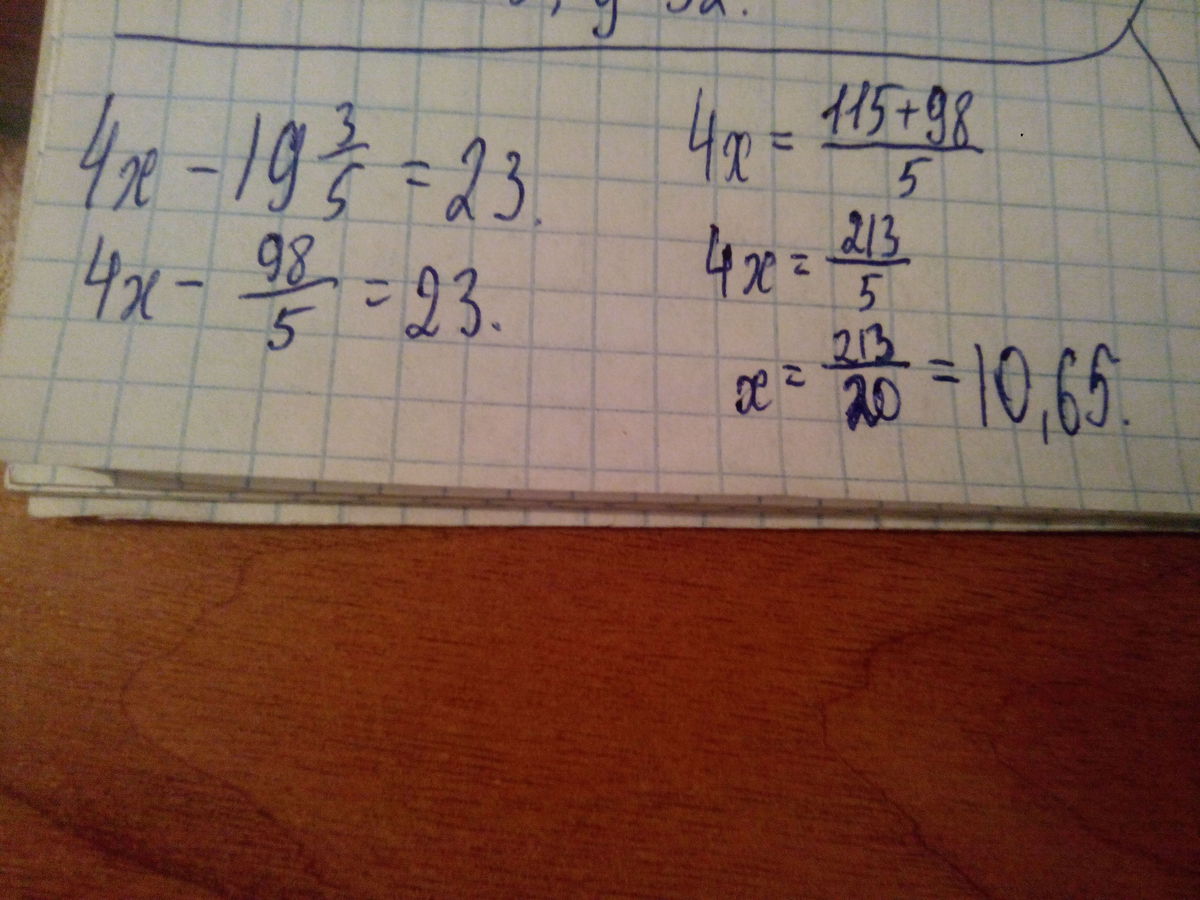 4x - 19 3/5 = 23.
4x - 98/5 = 23.
4x = (115+98)/5
4x = 213/5
x = 213/20 = 10,65.